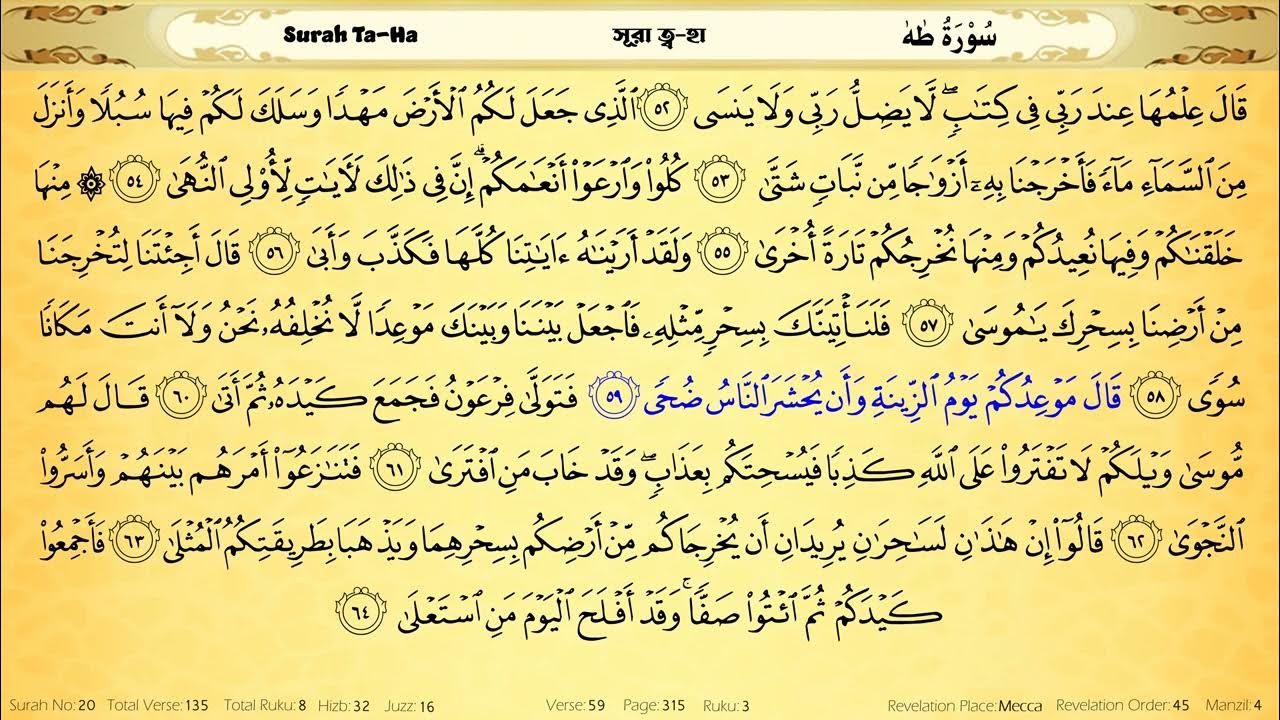 Surah Ta-Ha সূরা ত্ব-হা سُوْرَةُ طٰهٰ
قَالَ عِلْمُهَا عِندَ رَبِّى فِى كِتَٰبٍۖ لَّا يَضِلُّ رَبِّى وَلَا يَنسَى ٥٢ ٱلَّذِى جَعَلَ لَكُمُ ٱلْأَرْضَ مَهْدًا وَسَلَكَ لَكُمْ فِيهَا سُبُلًا وَأَنزَلَ
مِنَ ٱلسَّمَآءِ مَآءً فَأَخْرَجْنَا بِهِۦٓ أَزْوَٰجًا مِّن نَّبَاتٍ شَتَّىٰ ٥٣ كُلُوا۟ وَٱرْعَوْا۟ أَنْعَٰمَكُمْۗ إِنَّ فِى ذَٰلِكَ لَءَايَٰتٍ لِّأُو۟لِى ٱلنُّهَىٰ ٥٤ ۞ مِنْهَا
خَلَقْنَٰكُمْ وَفِيهَا نُعِيدُكُمْ وَمِنْهَا نُخْرِجُكُمْ تَارَةً أُخْرَىٰ ٥٥ وَلَقَدْ أَرَيْنَٰهُ ءَايَٰتِنَا كُلَّهَا فَكَذَّبَ وَأَبَىٰ ٥٦ قَالَ أَجِئْتَنَا لِتُخْرِجَنَا
مِنْ أَرْضِنَا بِسِحْرِكَ يَٰمُوسَىٰ ٥٧ فَلَنَأْتِيَنَّكَ بِسِحْرٍ مِّثْلِهِۦ فَٱجْعَلْ بَيْنَنَا وَبَيْنَكَ مَوْعِدًا لَّا نُخْلِفُهُۥ نَحْنُ وَلَآ أَنتَ مَكَانًا
سُوًى ٥٨ قَالَ مَوْعِدُكُمْ يَوْمُ ٱلزِّينَةِ وَأَن يُحْشَرَ ٱلنَّاسُ ضُحًى ٥٩ فَتَوَلَّىٰ فِرْعَوْنُ فَجَمَعَ كَيْدَهُۥ ثُمَّ أَتَىٰ ٦٠ قَالَ لَهُم
مُّوسَىٰ وَيْلَكُمْ لَا تَفْتَرُوا۟ عَلَى ٱللَّهِ كَذِبًا فَيُسْحِتَكُم بِعَذَابٍۖ وَقَدْ خَابَ مَنِ ٱفْتَرَىٰ ٦١ فَتَنَٰزَعُوٓا۟ أَمْرَهُم بَيْنَهُمْ وَأَسَرُّوا۟
ٱلنَّجْوَىٰ ٦٢ قَالُوٓا۟ إِنْ هَٰذَٰنِ لَسَٰحِرَٰنِ يُرِيدَانِ أَن يُخْرِجَاكُم مِّنْ أَرْضِكُم بِسِحْرِهِمَا وَيَذْهَبَا بِطَرِيقَتِكُمُ ٱلْمُثْلَىٰ ٦٣ فَأَجْمِعُوا۟
كَيْدَكُمْ ثُمَّ ٱئْتُوا۟ صَفًّاۚ وَقَدْ أَفْلَحَ ٱلْيَوْمَ مَنِ ٱسْتَعْلَىٰ ٦٤
Surah No: 20 Total Verse: 135 Total Ruku: 8 Hizb: 32 Juzz: 16 Verse: 59 Page: 315 Ruku: 3 Revelation Place: Mecca Revelation Order: 45 Manzil: 4